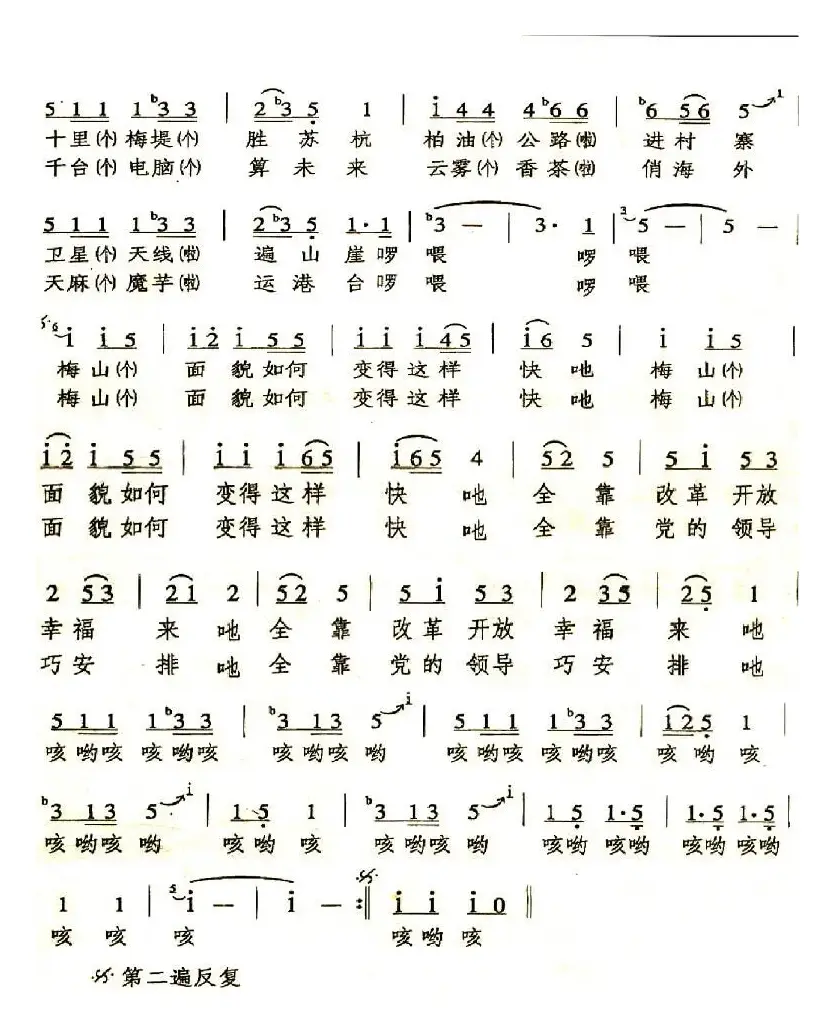 5 1 1 1 ♭3 3 | 2 ♭3 5 1 | i 4 4 4 ♭6 6 | ♭6 5 6 5 1 |
十里(个)梅堤(个) 胜苏杭 柏油(个)公路(啦) 进村寨
千台(个)电脑(个) 算未来 云雾(个)香茶(啦) 俏海外
5 1 1 1 ♭3 3 | 2 ♭3 5 1· 1 | ♭3 — | 3· 1 | 3 5 — | 5 — |
卫星(个)天线(啦) 遍山崖啰 喂 啰 喂
天麻(个)魔芋(啦) 运港台啰 喂 啰 喂
5·6 i i 5 | i 2 i 5 5 | i i i 4 5 | i 6 5 | i i 5 |
梅山(个) 面貌如何 变得这样 快吔 梅山(个)
梅山(个) 面貌如何 变得这样 快吔 梅山(个)
i 2 i 5 5 | i i i 6 5 | i 6 5 4 | 5 2 5 | 5 i 5 3 |
面貌如何 变得这样 快吔 全靠 改革开放
面貌如何 变得这样 快吔 全靠 党的领导
2 5 3 | 2 1 2 | 5 2 5 | 5 i 5 3 | 2 3 5 | 2 5 1 |
幸福 来吔 全靠 改革开放 幸福 来吔
巧安 排吔 全靠 党的领导 巧安 排吔
5 1 1 1 ♭3 3 | ♭3 1 3 5 i | 5 1 1 1 ♭3 3 | i 2 5 1 |
咳哟咳 咳哟咳 咳哟咳哟 咳哟咳 咳哟咳 咳哟咳
♭3 1 3 5 i | 1 5 1 | ♭3 1 3 5 i | 1 5 1· 5 | 1· 5 1· 5 |
咳哟咳哟 咳哟咳 咳哟咳哟 咳哟 咳哟 咳哟咳哟
1 1 | 5 i — | i — :‖ i i i 0 ‖
咳 咳 咳 咳哟咳
𝄋 第二遍反复